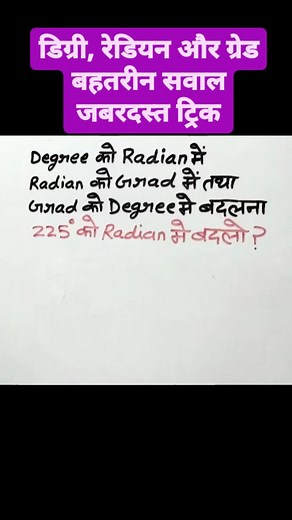 डिग्री, रेडियन और ग्रेड
बहतरीन सवाल
जबरदस्त ट्रिक
Degree को Radian में
Radian को Grad में तथा
Grad को Degree मे बदलना
225° को Radian मे बदलो ?